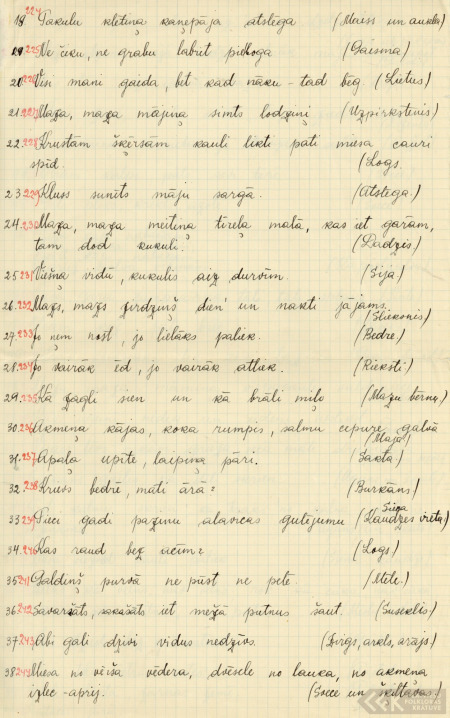 19 224 Pakulu klētiņa kaņepāja atslēga (Maiss un aukla)
19. 225 Ne čiku, ne grabu labut pieloga (Gaisma)
20 226 Visi mani gaida, bet kad nāku - tad bēg (Lietus)
21. 227 Maza, maza mājiņa simts lodziņi (Uzpirkstenis)
22. 228 Krustām šķērsām kauli likti pati miesa cauri
spīd. (Logs.
23 229 Kluss sunīts māju sargā. (Atslēga.)
24. 230 Maza, maza meitiņa tīreļa malā, kas iet garām,
tam dod kukuli. (Dadzis)
25 231 Viešņa vidū, kukulis aiz durvīm. (Sija)
26. 232 Mazs, mazs zirdziņš dien' un nakti jājams.
(Slieksnis)
27. 233 Jo ņem nost, jo lielāks paliek. (Bedre.)
28. 234 Jo vairāk ēd, jo vairāk atliek. (Rieksti.)
29. 235 Kā zagli sien un kā brāli mīļo (Mazu bērnu)
30. 236 Akmeņa kājas, koka rumpis, salmu cepure galvā
(Māja)
31. 237 Apaļa upīte, laipiņa pāri. (Sakta)
32. 238 Krievs bedrē, mati ārā? (Burkāns)
33 239 Pieci gadi pazinu alavicas gulējumu (Siena Kaudzes vieta)
34. 240 Kas raud bez acīm? (Logs)
35 241 Galdiņš purvā ne pūst ne pelē. (Mēle.)
36 242 Savaršāts, sakašāts iet mežā putnus šaut. (Suseklis.)
37 243 Abi gali dzīvi vidus nedzīvs. (Zirgs, arkls, arājs.)
38 244 Miesa no vērša vēdera, dvēsele no lauka, no akmeņa
izlec - aprij. (Posa un šķiltavas.)
LFK
FOLKLORAS
KRĀTUVE